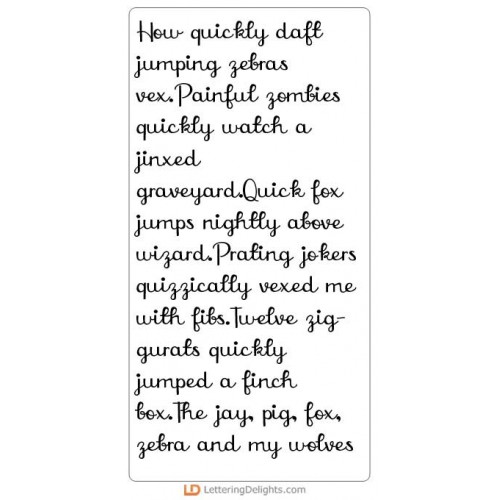 How quickly daft
jumping zebras
vex.Painful zombies
quickly watch a
jinxed
graveyard.Quick fox
jumps nightly above
wizard.Prating jokers
quizzically vexed me
with fibs.Twelve zig-
gurats quickly
jumped a finch
box.The jay, pig, fox,
zebra and my wolves
LD LetteringDelights.com